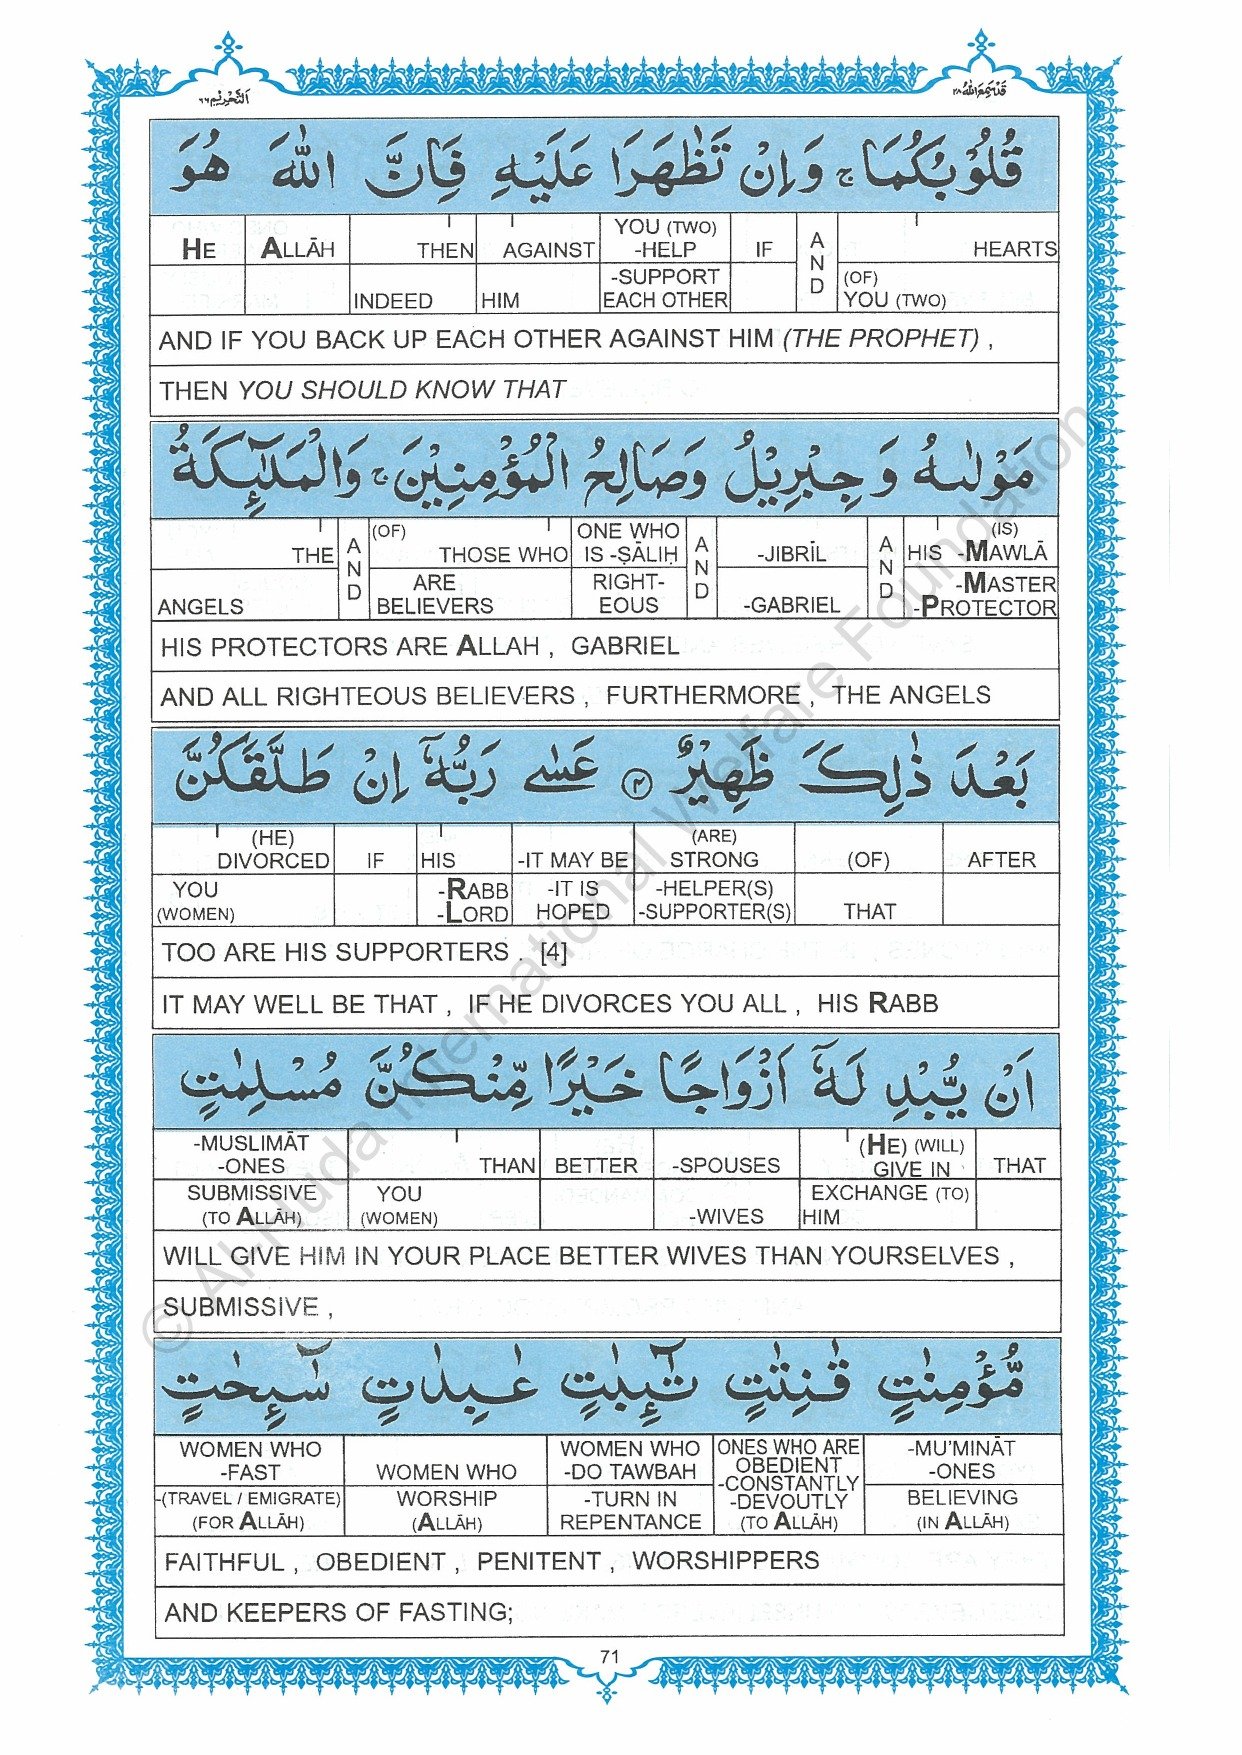 اَلتَّحْرِيْم ٦٦
قَدْ سَمِعَ اللّٰهُ ٢٨
قُلُوْبُكُمَا ۚ وَاِنْ تَظٰهَرَا عَلَيْهِ فَاِنَّ اللّٰهَ هُوَ
HE ALLĀH THEN AGAINST YOU (TWO) -HELP IF AND HEARTS
INDEED HIM -SUPPORT EACH OTHER (OF) YOU (TWO)
AND IF YOU BACK UP EACH OTHER AGAINST HIM (THE PROPHET) ,
THEN YOU SHOULD KNOW THAT
مَوْلٰىهُ وَ جِبْرِيْلُ وَصَالِحُ الْمُؤْمِنِيْنَ ۚ وَالْمَلٰٓئِكَةُ
THE AND (OF) THOSE WHO ONE WHO IS -ṢĀLIḤ AND -JIBRĪL AND HIS (IS) -MAWLĀ
ANGELS ARE BELIEVERS RIGHT-EOUS -GABRIEL -MASTER -PROTECTOR
HIS PROTECTORS ARE ALLAH , GABRIEL
AND ALL RIGHTEOUS BELIEVERS , FURTHERMORE , THE ANGELS
بَعْدَ ذٰلِكَ ظَهِيْرٌ ۴ عَسٰى رَبُّهٗٓ اِنْ طَلَّقَكُنَّ
(HE) DIVORCED IF HIS -IT MAY BE (ARE) STRONG (OF) AFTER
YOU (WOMEN) -RABB -LORD -IT IS HOPED -HELPER(S) -SUPPORTER(S) THAT
TOO ARE HIS SUPPORTERS . [4]
IT MAY WELL BE THAT , IF HE DIVORCES YOU ALL , HIS RABB
اَنْ يُّبْدِلَهٗٓ اَزْوَاجًا خَيْرًا مِّنْكُنَّ مُسْلِمٰتٍ
-MUSLIMĀT -ONES THAN BETTER -SPOUSES (HE) (WILL) GIVE IN THAT
SUBMISSIVE (TO ALLĀH) YOU (WOMEN) -WIVES EXCHANGE (TO) HIM
WILL GIVE HIM IN YOUR PLACE BETTER WIVES THAN YOURSELVES ,
SUBMISSIVE ,
مُّؤْمِنٰتٍ قٰنِتٰتٍ تٰٓئِبٰتٍ عٰبِدٰتٍ سٰٓئِحٰتٍ
WOMEN WHO -FAST WOMEN WHO WOMEN WHO -DO TAWBAH ONES WHO ARE OBEDIENT -CONSTANTLY -MU'MINĀT -ONES
-(TRAVEL / EMIGRATE) (FOR ALLĀH) WORSHIP (ALLĀH) -TURN IN REPENTANCE -DEVOUTLY (TO ALLĀH) BELIEVING (IN ALLĀH)
FAITHFUL , OBEDIENT , PENITENT , WORSHIPPERS
AND KEEPERS OF FASTING;
71
© Al-Huda International Welfare Foundation